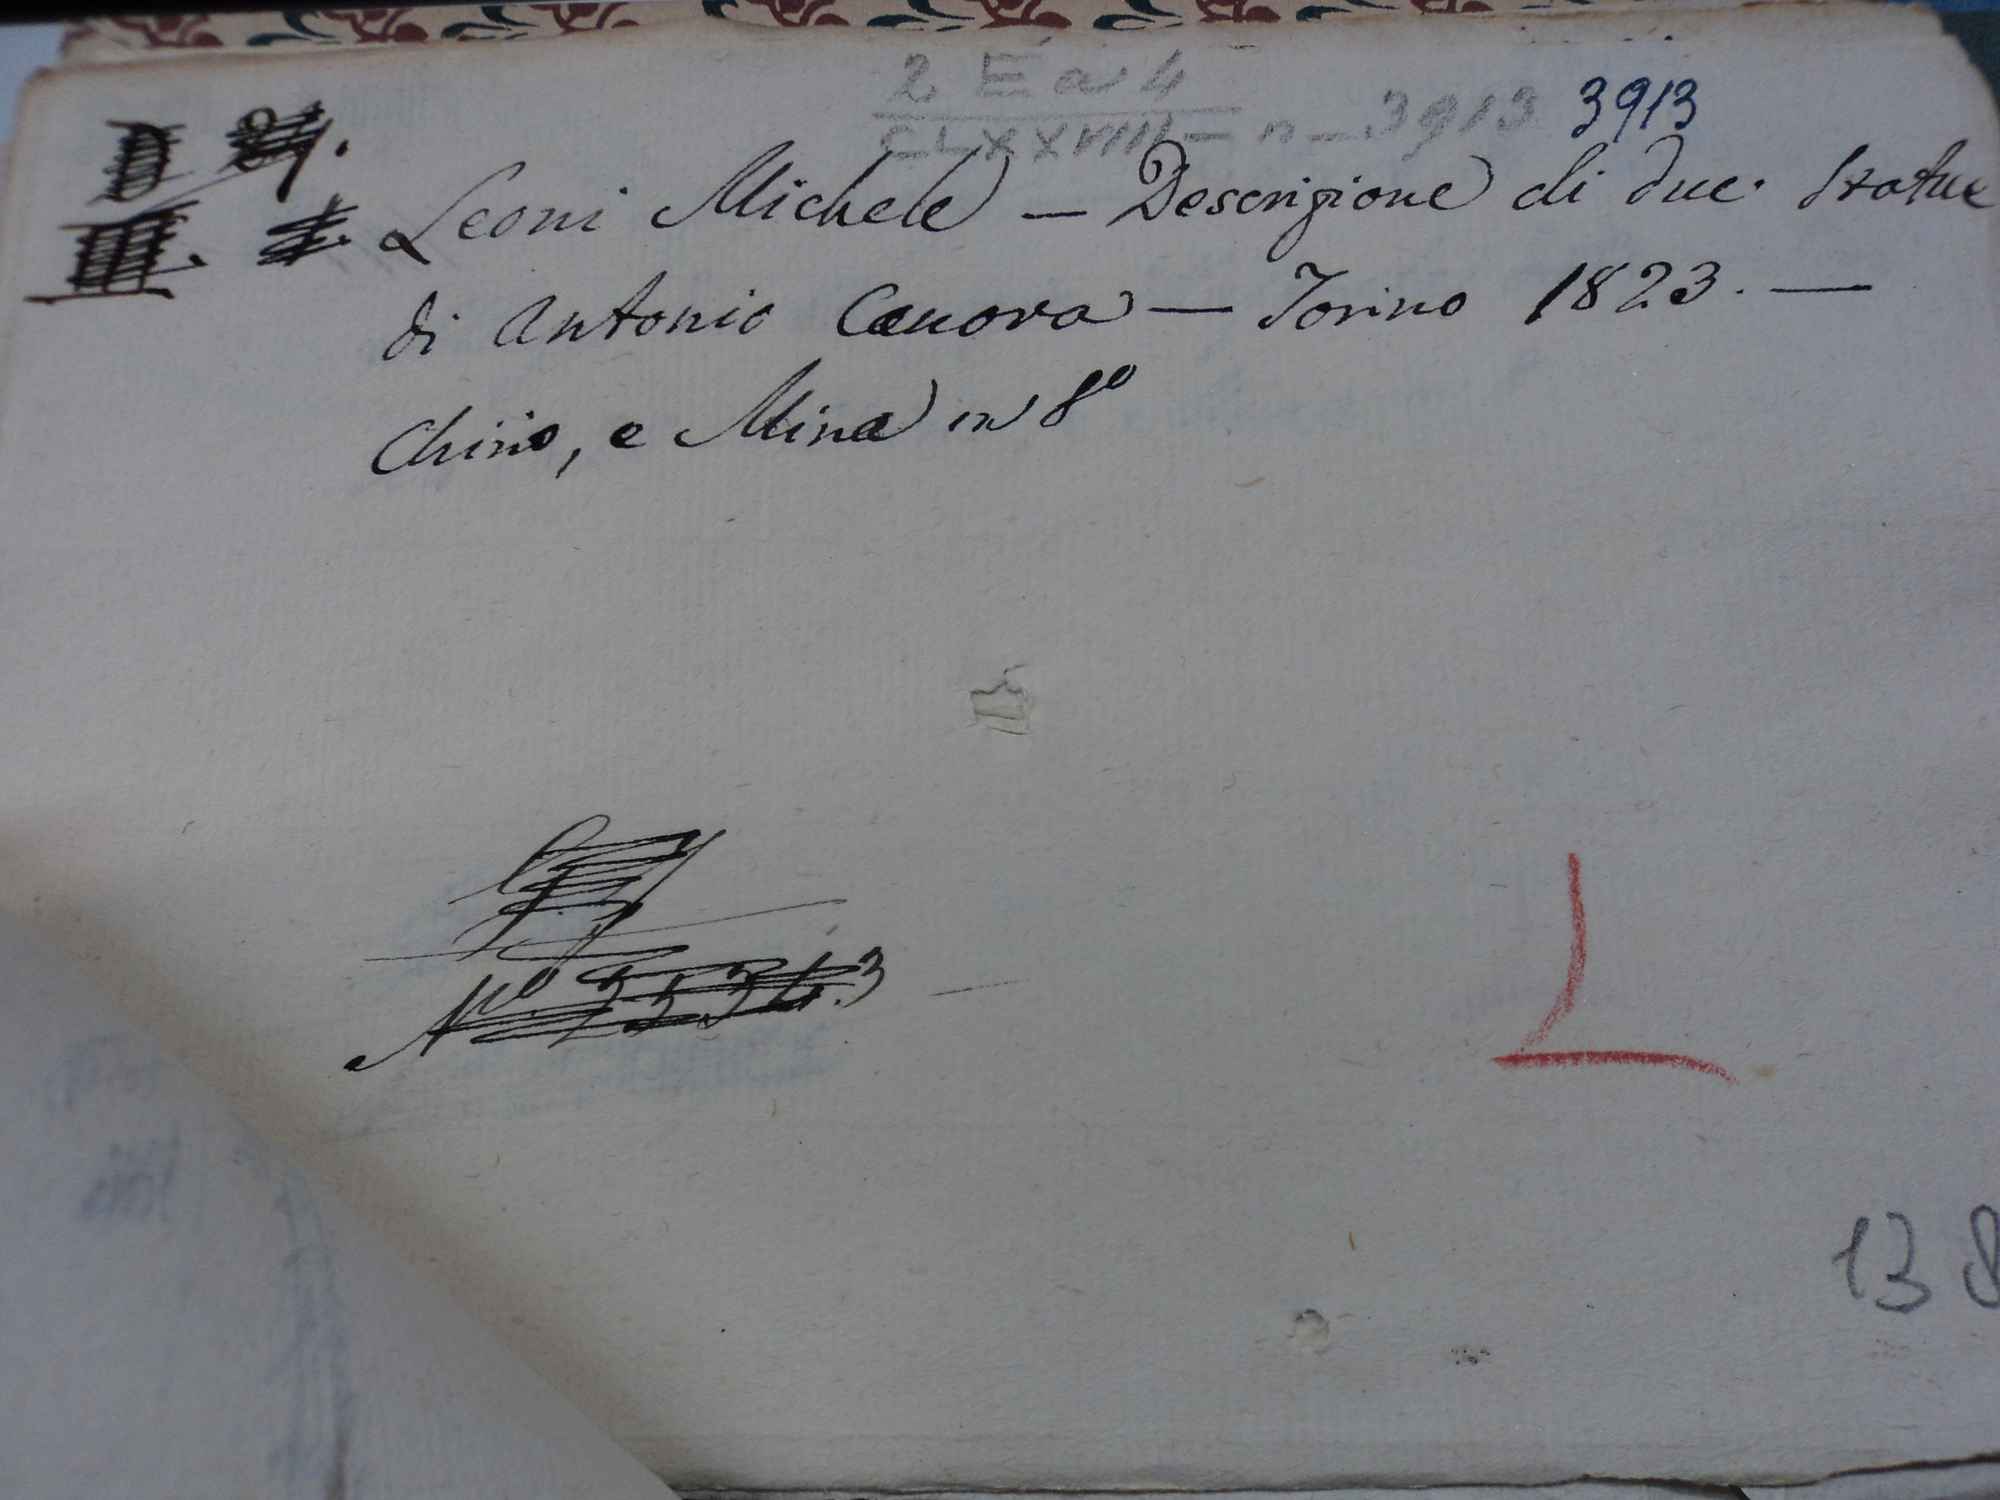 2 E a 4
CLXXVIII - n - 3913 3913
Leoni Michele — Descrizione di due Statue
di Antonio Canova — Torino 1823. —
Chirio, e Mina in 8º
Nº
L
138